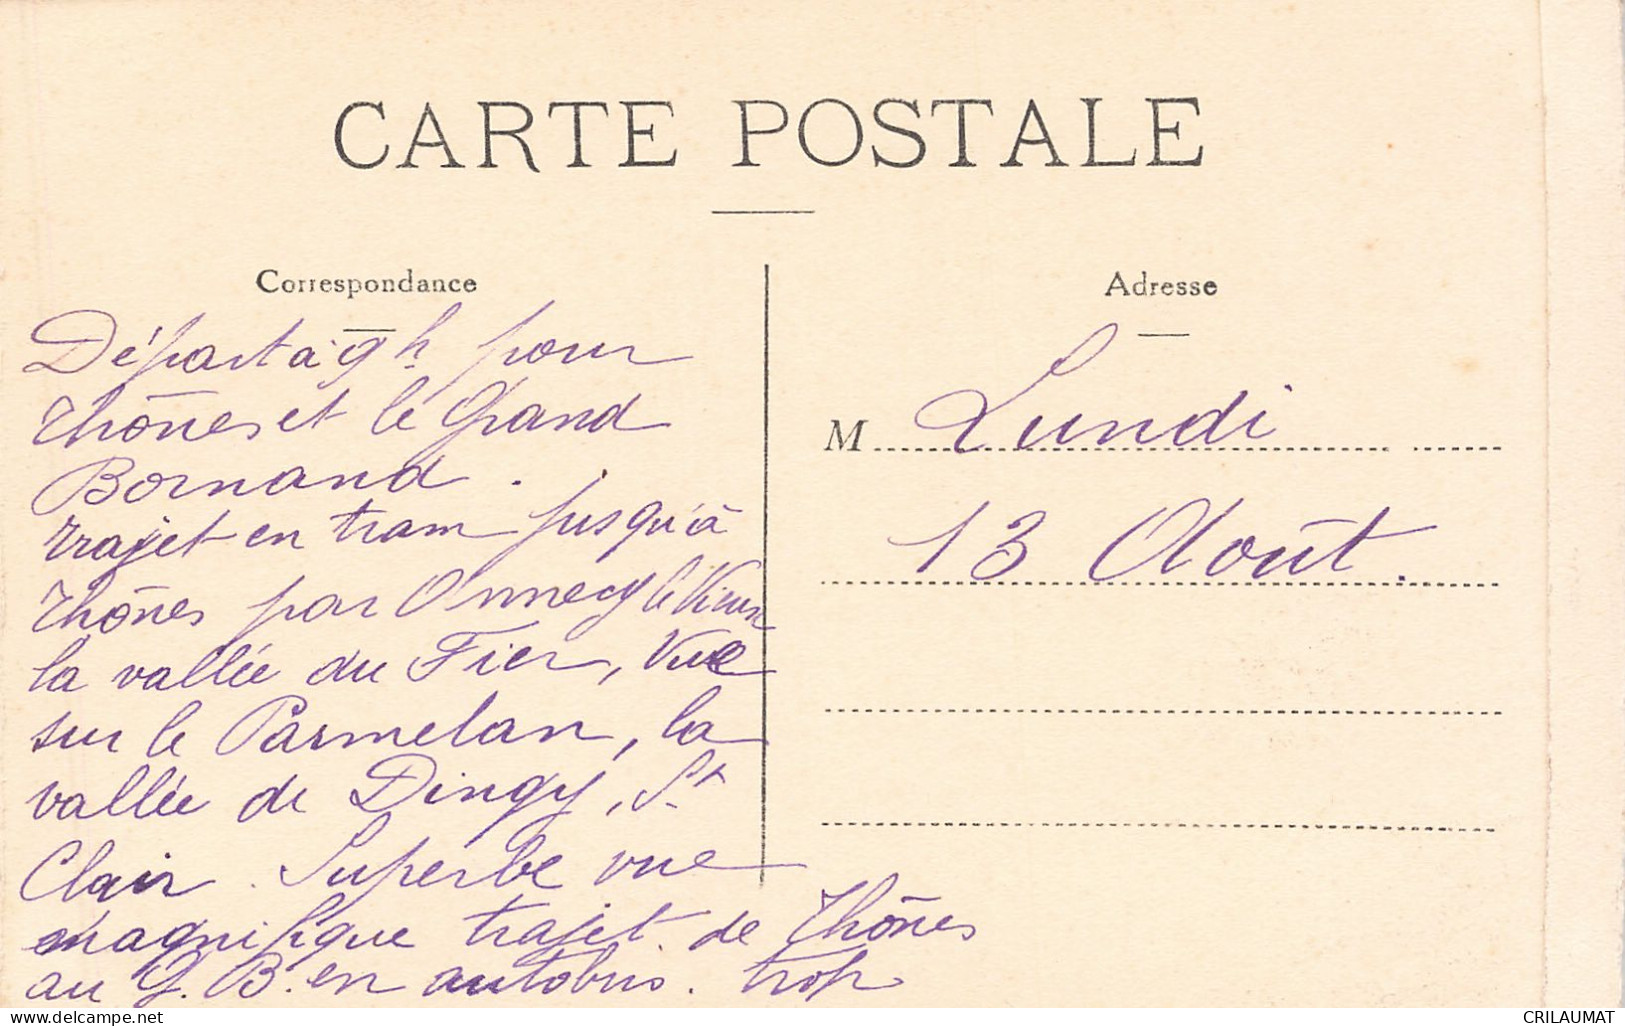 CARTE POSTALE
Correspondance
Départ à 9h pour
Thônes et le Grand
Bornand.
trajet en tram jusqu'à
Thônes par Annecy le Vieux
la vallée du Fier, Vue
sur le Parmelan, la
vallée de Dingy, St
Clair. Superbe vue
magnifique trajet de Thônes
au G. B. en autobus. trop
Adresse
M Lundi
13 Août.
www.delcampe.net
CRILAUMAT